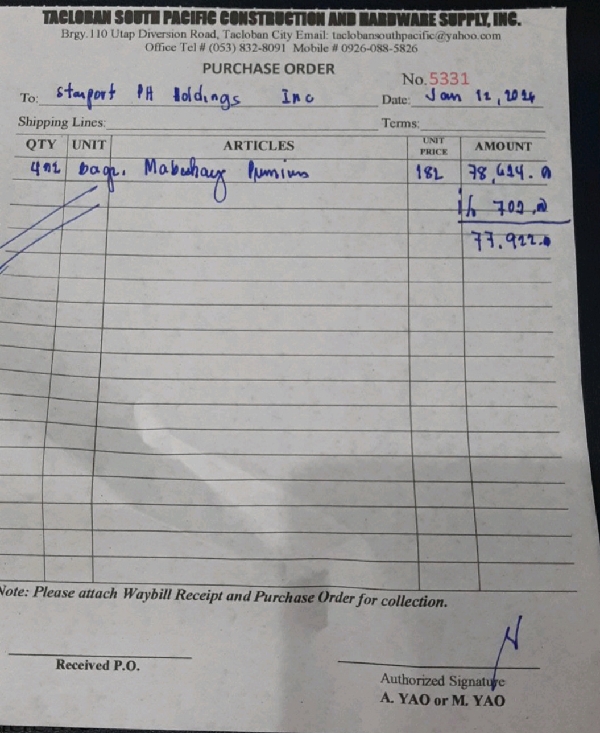 TACLOBAN SOUTH PACIFIC CONSTRUCTION AND HARDWARE SUPPLY, INC.
Brgy.110 Utap Diversion Road, Tacloban City Email: taclobansouthpacific@yahoo.com
Office Tel # (053) 832-8091 Mobile # 0926-088-5826
PURCHASE ORDER
No.5331
To: Starport PH Holdings Inc Date: Jan 12, 2024
Shipping Lines: Terms:
QTY UNIT ARTICLES UNIT PRICE AMOUNT
432 bags Mabuhay Premium 182 78,624.00
702.00
77,922.00
Note: Please attach Waybill Receipt and Purchase Order for collection.
Received P.O.
Authorized Signature
A. YAO or M. YAO